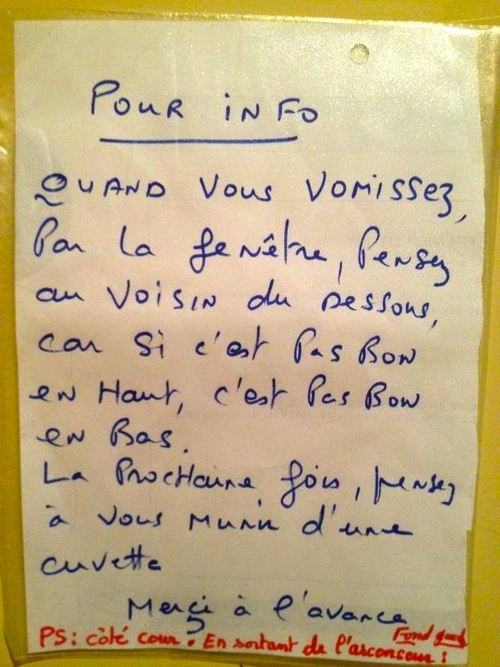 POUR iNFO
QUAND Vous VOMISSEZ,
Par La fenêtre, Pensez
au VOISIN du Dessous,
car Si c'est Pas BON
en Haut, c'est Pas Bon
en Bas.
La Prochaine fois, pensez
à Vous MUNIR d'une
cuvette
Merçi à l'avance
PS: côté cour. En sortant de l'ascenseur:
Fond